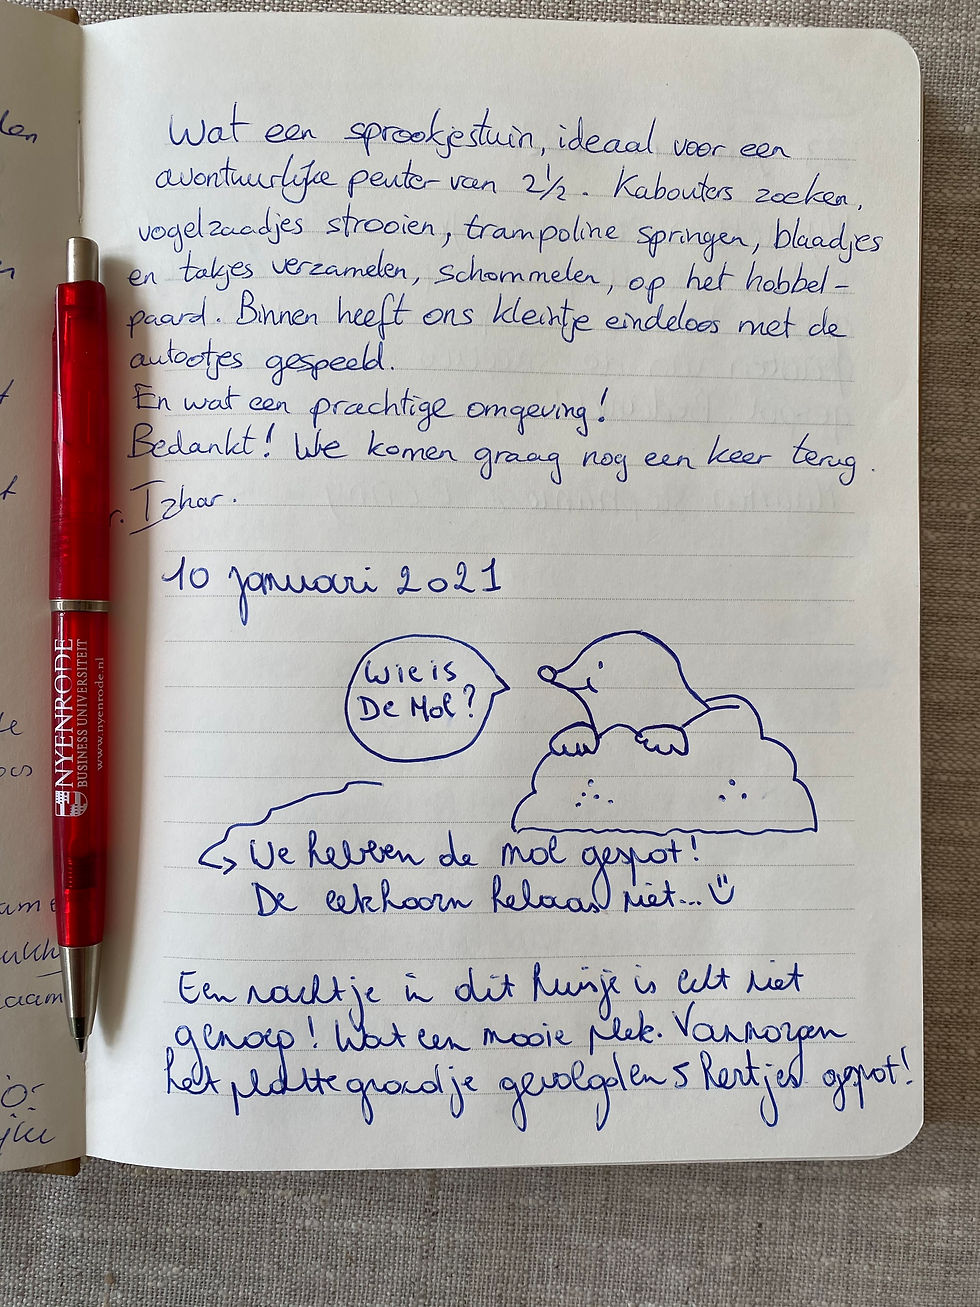 Wat een sprookjestuin, ideaal voor een
avontuurlijke peuter van 2½. Kabouters zoeken,
vogelzaadjes strooien, trampoline springen, blaadjes
en takjes verzamelen, schommelen, op het hobbel-
paard. Binnen heeft ons kleintje eindeloos met de
autootjes gespeeld.
En wat een prachtige omgeving!
Bedankt! We komen graag nog een keer terug.
r. Izhar.
10 januari 2021
Wie is
De Mol?
We hebben de mol gespot!
De eekhoorn helaas niet...
Een nachtje in dit huisje is echt niet
genoeg! Wat een mooie plek. Vanmorgen
het plattegrondje gevolgd en 5 hertjes gespot!
NYENRODE
BUSINESS UNIVERSITEIT
www.nyenrode.nl